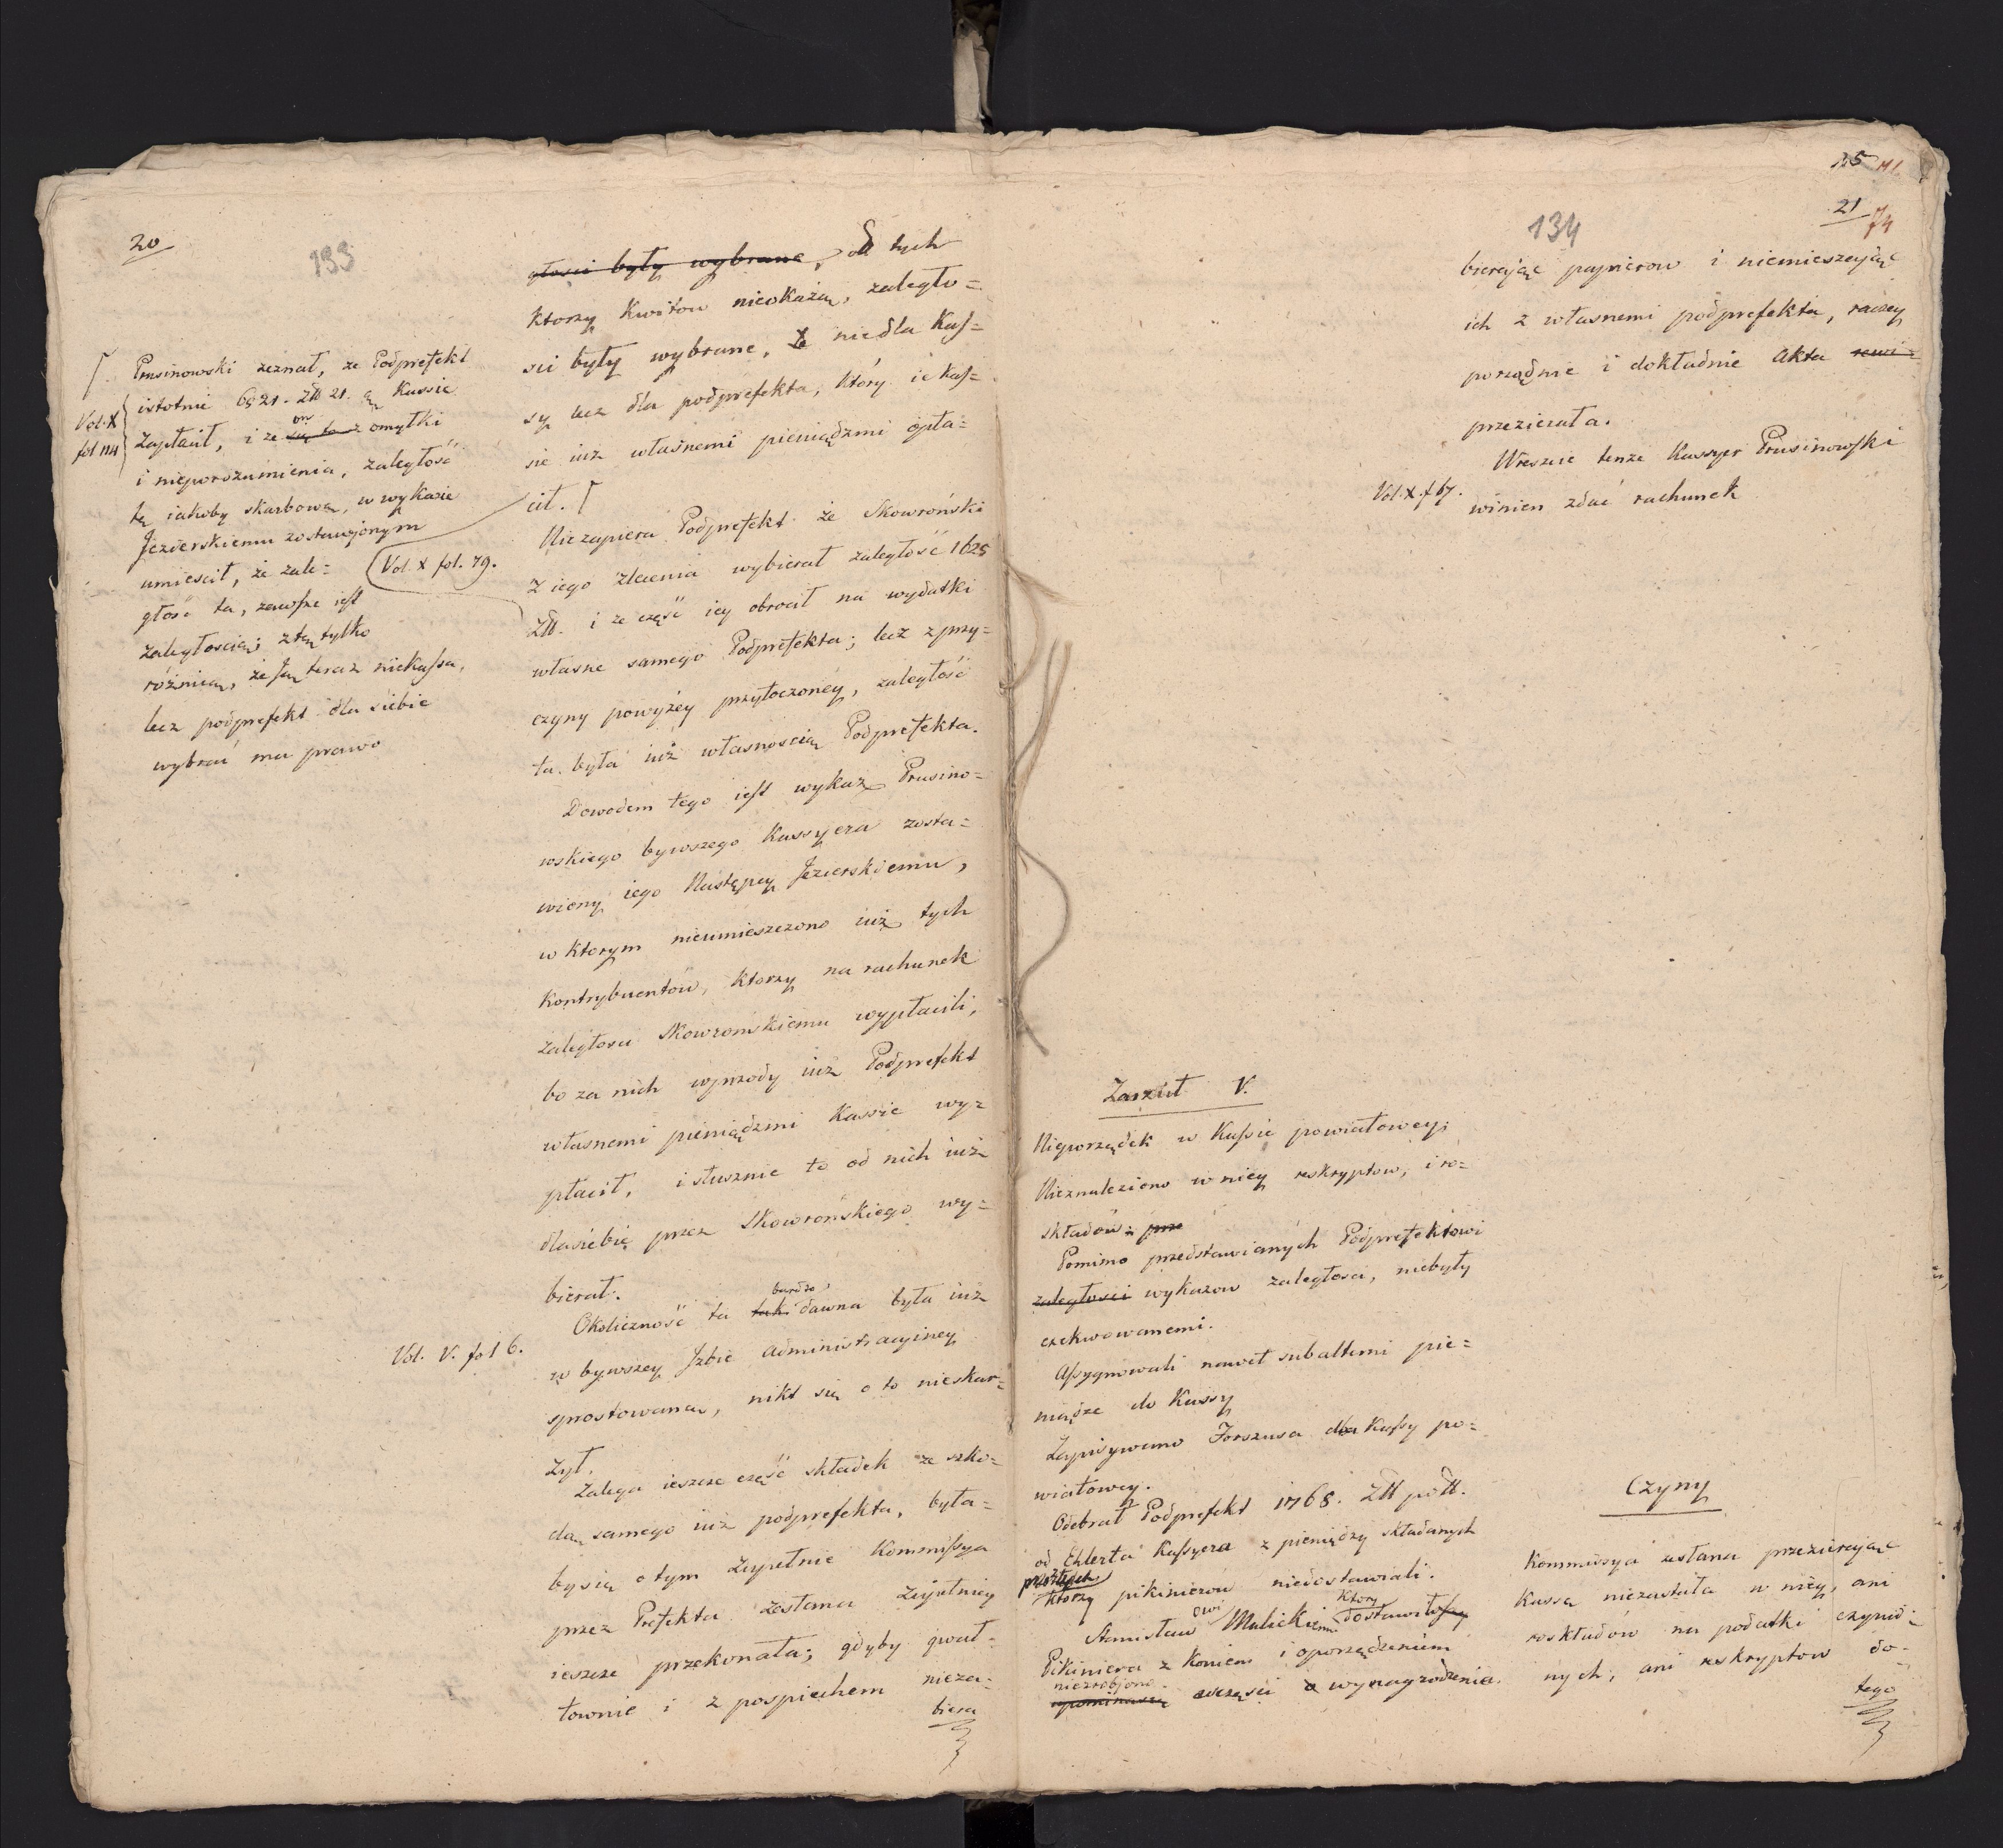 20
133
Prusinowski zeznał, ze Podprefekt
istotnie 6921. Złł 21. gr Kassie
Vol. X
fol 114
zapłacił, i ze on się to z omyłki
i nieporozumienia, zaległość
tę iakoby skarbową, w wykazie
Jezierskiemu zostawionym
umiescił, że zale=
głość ta, zawsze iest
zaległoscią; z tą tylko
różnicą, że ją teraz niekassa,
lecz podprefekt dla siebie
wybrać ma prawo
Vol. X fol. 79.
Vol. V. fol 6.
głosci były wybrane, od tych
ktorzy Kwitow nieokażą, zaległo=
sci były wybrane, że nie dla Kas=
sy lecz dla podprefekta, który ie kas=
sie iuz własnemi pieniądzmi opła=
cił.
Niezapiera Podprefekt że Skowroński
z iego zlecenia wybierał zaległość 1625
Złł. i ze część iey obrocił na wydatki
własne samego Podprefekta; lecz z przy=
czyny powyżey przytoczoney, zaległość
ta była iuż własnoscią Podprefekta.
Dowodem tego iest wykaz Prusino=
wskiego bywszego Kassyera zosta=
wiony iego Następcy Jezierskiemu,
w ktorym nieumieszczono iuż tych
Kontrybuentów, ktorzy na rachunek
zaległosci Skowronskiemu wypłacili,
bo za nich wprzody iuż Podprefekt
własnemi pieniądzmi Kassie wy=
płacił, i słusznie to od nich iuż
dla siebie przez Skowrońskiego wy=
bierał.
bardzo
Okoliczność ta tak dawna była iuż
w bywszey Izbie Administracyiney
sprostowana, nikt się o to nieskar=
żył.
Zalega ieszcze część składek ze szko=
dą samego iuż podprefekta, była=
by się o tym zupełnie Kommissya
przez Prefekta zesłana zupełniey
ieszcze przekonała; gdyby gwał=
townie i z pospiechem nieza=
biera
21
74
134
bierając papierow i niemieszając
ich z własnemi podprefekta, raczey
porządnie i dokładnie Akta rewi=
przezierała.
Wreszcie tenze Kassyer Prusinowski
Vol. X. f 67.
winien zdać rachunek
Zarzut V.
Nieporządek w Kassie powiatowey;
Nieznaleziono w niey reskryptow, i ro=
składów; prze
Pomimo przedstawianych Podprefektowi
zaległosci wykazow zaległosci, niebyły
exekwowanemi.
Assygnowali nawet subalterni pie=
niądze do Kassy
Zapisywano Forszusa dla Kassy po=
wiatowey.
Odebrał Podprefekt 1768. Złł poll.
od Ehlerta Kassyera z pieniędzy składanych
przez tych
ktorzy pikinierów niedostawiali.
Stanisławowi Malickiemu który dostawiał
Pikiniera z Koniem i oporządzeniem
niezrobiono
upominaszą wczęsci o wynagrodzenia.
Czyny
Kommissya zesłana przezieraiąc
Kassę niezastała w niey, ani
roskładów na podatki czynio=
nych, ani reskryptow do=
tego